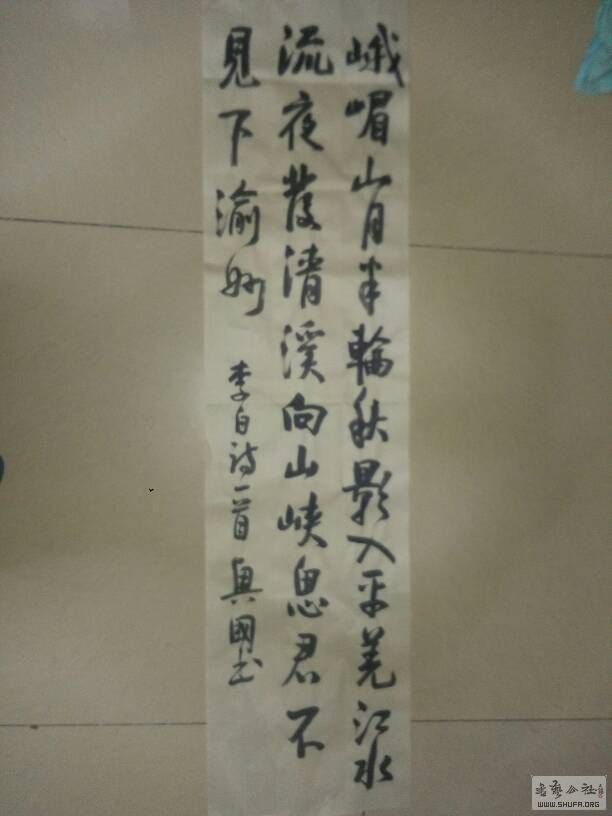 峨嵋山月半輪秋影入平羌江水
流夜發清溪向山峽思君不
見下渝州
李白诗一首 興國书
书艺公社
WWW.SHUFA.ORG